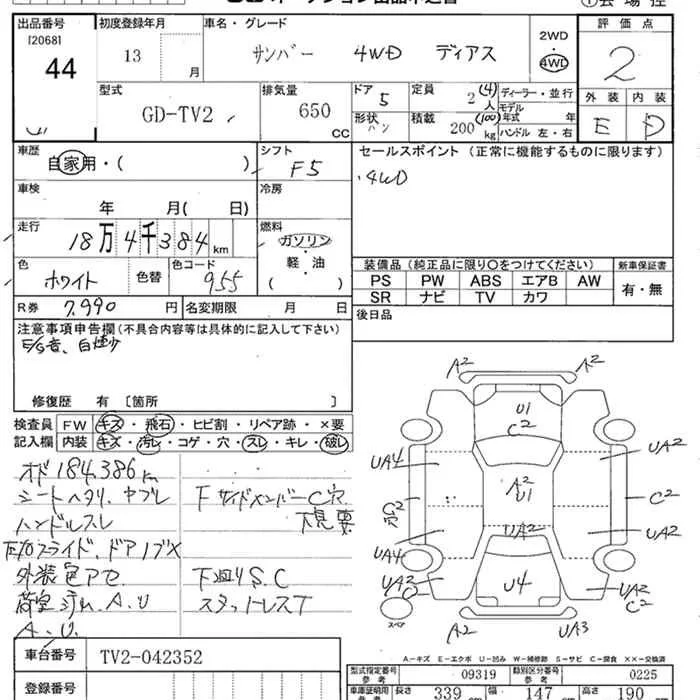 出品番号
[2068]
44
初度登録年月
13 月
車名・グレード
サンバー 4WD ディアス
2WD
4WD
評価点
2
型式
GD-TV2
排気量
650 CC
ドア 5
形状 バン
定員 2(4)人
積載 200(100)kg
ディーラー・並行
モデル年式 年
ハンドル 左・右
外装 内装
E D
車歴
自家用・( )
シフト
F5
セールスポイント (正常に機能するものに限ります)
・4WD
車検
年 月( 日)
冷房
走行
18万4千384km
燃料
ガソリン・
軽・油
( )
色
ホワイト
色替
色コード
955
装備品 (純正品に限り○をつけてください)
新車保証書
PS PW ABS エアB AW
SR ナビ TV カワ
有・無
R券 7,990 円
名変期限 月 日
後日品
注意事項申告欄(不具合内容等は具体的に記入して下さい)
E/G音、白煙少
修復歴 有 [箇所 ]
検査員
記入欄
FW キズ・飛石・ヒビ割・リペア跡・×要
内装 キズ・汚レ・コゲ・穴・スレ・キレ・破レ
オド 184,386km
シートヘタリ、ヤブレ
ハンドルスレ
FサイドメンバーC穴
下見要
外装色アセ
荷室汚れ、A.U
A.U.
下回りS.C
スタットレスT
A2 A2
U1
C2
UA4 UA2
A2
U1
C2
穴
C2
UA2
UA2
UA4
UA2
C2
U4
UA2
C2
スペア
A2 UA3
A-キズ E-エクボ U-凹み W-補修跡 S-サビ C-腐食 XX-交換済
車台番号
TV2-042352
登録番号
型式指定番号
参考
09319
類別区分番号
参考
0225
車庫証明用
参考
長さ 339 幅 147 高さ 190
cm